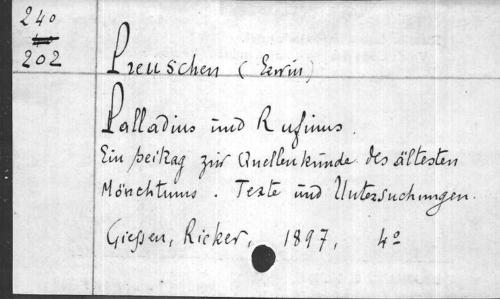 240
202
Preuschen (Erwin)
Palladius und Rufinus.
Ein Beitrag zur Quellenkunde des ältesten
Mönchtums. Texte und Untersuchungen.
Gießen, Ricker, 1897, 4º